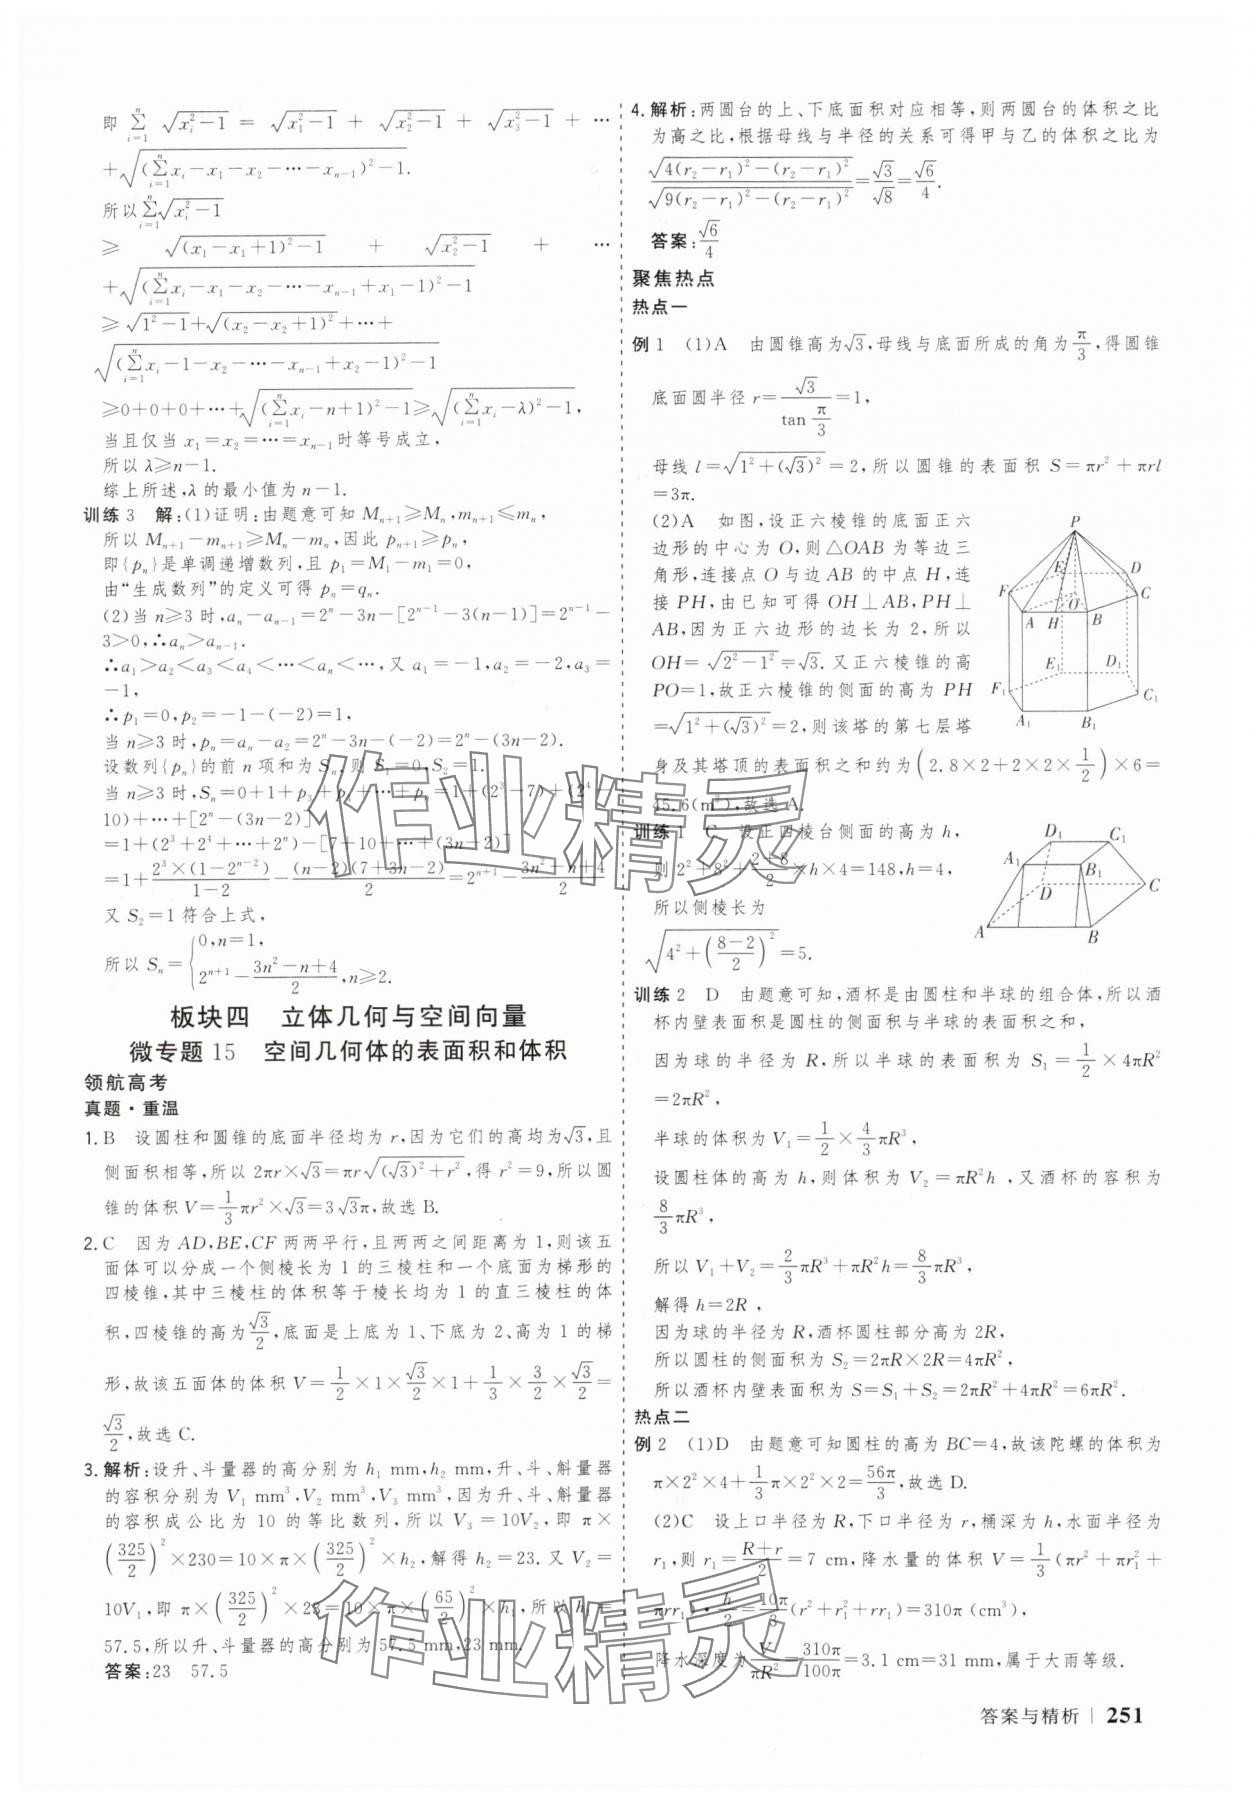 即 $\sum_{i=1}^{n}\sqrt{x_i^2-1}=\sqrt{x_1^2-1}+\sqrt{x_2^2-1}+\sqrt{x_3^2-1}+\cdots$
$+\sqrt{(\sum_{i=1}^{n}x_i-x_1-x_2-\cdots-x_{n-1})^2-1}.$
所以 $\sum_{i=1}^{n}\sqrt{x_i^2-1}$
$\geqslant\sqrt{(x_1-x_1+1)^2-1}+\sqrt{x_2^2-1}+\cdots$
$+\sqrt{(\sum_{i=1}^{n}x_i-x_1-x_2-\cdots-x_{n-1}+x_1-1)^2-1}$
$\geqslant\sqrt{1^2-1}+\sqrt{(x_2-x_2+1)^2}+\cdots+$
$\sqrt{(\sum_{i=1}^{n}x_i-1-x_2-\cdots-x_{n-1}+x_2-1)^2-1}$
$\geqslant0+0+0+\cdots+\sqrt{(\sum_{i=1}^{n}x_i-n+1)^2-1}\geqslant\sqrt{(\sum_{i=1}^{n}x_i-\lambda)^2-1},$
当且仅当 $x_1=x_2=\cdots=x_{n-1}$ 时等号成立，
所以 λ⩾n-1.
综上所述，λ 的最小值为 n-1.
训练3 解：(1)证明：由题意可知 $M_{n+1}\geqslant M_n,m_{n+1}\leqslant m_n$，
所以 $M_{n+1}-m_{n+1}\geqslant M_n-m_n$，因此 $p_{n+1}\geqslant p_n$，
即{$p_n$}是单调递增数列，且 $p_1=M_1-m_1=0$，
由“生成数列”的定义可得 $p_n=q_n$.
(2)当 n⩾3 时，$a_n-a_{n-1}=2^n-3n-[2^{n-1}-3(n-1)]=2^{n-1}-$
$3>0,∴a_n>a_{n-1}.$
$∴a_1>a_2<a_3<a_4<\cdots<a_n<\cdots$，又 $a_1=-1,a_2=-2,a_3=$
$-1,$
$∴p_1=0,p_2=-1-(-2)=1,$
当 n⩾3 时，$p_n=a_n-a_2=2^n-3n-(-2)=2^n-(3n-2).$
设数列{$p_n$}的前 n 项和为 $S_n$，则 $S_1=0,S_2=1.$
当 n⩾3 时，$S_n=0+1+p_3+p_4+\cdots+p_n=1+(2^3-7)+(2^4-$
$10)+\cdots+[2^n-(3n-2)]$
$=1+(2^3+2^4+\cdots+2^n)-[7+10+\cdots+(3n-2)]$
$=1+\frac{2^3\times(1-2^{n-2})}{1-2}-\frac{(n-2)(7+3n-2)}{2}=2^{n+1}-\frac{3n^2-n+4}{2}$
又 $S_2=1$ 符合上式，
所以 $S_n=\begin{cases}0,n=1,\\2^{n+1}-\frac{3n^2-n+4}{2},n\geqslant2.\end{cases}$
板块四 立体几何与空间向量
微专题15 空间几何体的表面积和体积
领航高考
真题·重温
1.B 设圆柱和圆锥的底面半径均为 r，因为它们的高均为$\sqrt{3}$，且
侧面积相等，所以 $2πr\times\sqrt{3}=πr\sqrt{(\sqrt{3})^2+r^2}$，得 $r^2=9$，所以圆
锥的体积 $V=\frac{1}{3}πr^2\times\sqrt{3}=3\sqrt{3}π$，故选 B.
2.C 因为 AD,BE,CF 两两平行，且两两之间距离为 1，则该五
面体可以分成一个侧棱长为 1 的三棱柱和一个底面为梯形的
四棱锥，其中三棱柱的体积等于棱长均为 1 的直三棱柱的体
积，四棱锥的高为$\frac{\sqrt{3}}{2}$，底面是上底为 1、下底为 2、高为 1 的梯
形，故该五面体的体积 $V=\frac{1}{2}\times1\times\frac{\sqrt{3}}{2}\times1+\frac{1}{3}\times\frac{3}{2}\times\frac{\sqrt{3}}{2}=$
$\frac{\sqrt{3}}{2}$，故选 C.
3.解析：设升、斗量器的高分别为 $h_1$ mm，$h_2$ mm，升、斗、斛量器
的容积分别为 $V_1$ mm³，$V_2$ mm³，$V_3$ mm³，因为升、斗、斛量器
的容积成公比为 10 的等比数列，所以 $V_3=10V_2$，即 π×
$(\frac{325}{2})^2\times230=10\timesπ\times(\frac{325}{2})^2\times h_2$，解得 $h_2=23$. 又 $V_2=$
$10V_1$，即 $π\times(\frac{325}{2})^2\times23=10\timesπ\times(\frac{65}{2})^2\times h_1$，所以 $h_1=$
57.5，所以升、斗量器的高分别为 57.5 mm，23 mm.
答案：23 57.5
4.解析：两圆台的上、下底面积对应相等，则两圆台的体积之比
为高之比，根据母线与半径的关系可得甲与乙的体积之比为
$\frac{\sqrt{4(r_2-r_1)^2-(r_2-r_1)^2}}{\sqrt{9(r_2-r_1)^2-(r_2-r_1)^2}}=\frac{\sqrt{3}}{\sqrt{8}}=\frac{\sqrt{6}}{4}.$
答案：$\frac{\sqrt{6}}{4}$
聚焦热点
热点一
例1 (1)A 由圆锥高为$\sqrt{3}$，母线与底面所成的角为$\frac{π}{3}$，得圆锥
底面圆半径 $r=\frac{\sqrt{3}}{\tan\frac{π}{3}}=1$，
母线 $l=\sqrt{1^2+(\sqrt{3})^2}=2$，所以圆锥的表面积 $S=πr^2+πrl$
=3π.
(2)A 如图，设正六棱锥的底面正六
边形的中心为 O，则△OAB 为等边三
角形，连接点 O 与边 AB 的中点 H，连
接 PH，由已知可得 OH⊥AB，PH⊥
AB，因为正六边形的边长为 2，所以
$OH=\sqrt{2^2-1^2}=\sqrt{3}$. 又正六棱锥的高
PO=1，故正六棱锥的侧面的高为 PH
$=\sqrt{1^2+(\sqrt{3})^2}=2$，则该塔的第七层塔
P
E
D
F
C
O
A
H
B
E₁
D₁
F₁
C₁
A₁
B₁
身及其塔顶的表面积之和约为$(2.8\times2+2\times2\times\frac{1}{2})\times6=$
45.6(m²)，故选 A.
训练1 C 设正四棱台侧面的高为 h，
则 $2^2+8^2+\frac{2+8}{2}\times h\times4=148,h=4$，
所以侧棱长为
$\sqrt{4^2+(\frac{8-2}{2})^2}=5.$
D₁
C₁
A₁
B₁
D
C
A
B
训练2 D 由题意可知，酒杯是由圆柱和半球的组合体，所以酒
杯内壁表面积是圆柱的侧面积与半球的表面积之和，
因为球的半径为 R，所以半球的表面积为 $S_1=\frac{1}{2}\times4πR^2$
$=2πR^2$，
半球的体积为 $V_1=\frac{1}{2}\times\frac{4}{3}πR^3$，
设圆柱体的高为 h，则体积为 $V_2=πR^2h$，又酒杯的容积为
$\frac{8}{3}πR^3$，
所以 $V_1+V_2=\frac{2}{3}πR^3+πR^2h=\frac{8}{3}πR^3$，
解得 h=2R，
因为球的半径为 R，酒杯圆柱部分高为 2R，
所以圆柱的侧面积为 $S_2=2πR\times2R=4πR^2$，
所以酒杯内壁表面积为 $S=S_1+S_2=2πR^2+4πR^2=6πR^2$.
热点二
例2 (1)D 由题意可知圆柱的高为 BC=4，故该陀螺的体积为
$π\times2^2\times4+\frac{1}{3}π\times2^2\times2=\frac{56π}{3}$，故选 D.
(2)C 设上口半径为 R，下口半径为 r，桶深为 h，水面半径为
$r_1$，则 $r_1=\frac{R+r}{2}=7$ cm，降水量的体积 $V=\frac{1}{3}(πr^2+πr_1^2+$
$πrr_1)\cdot\frac{h}{2}=\frac{10π}{3}(r^2+r_1^2+rr_1)=310π(cm^3)$，
降水深度为$\frac{V}{πR^2}=\frac{310π}{100π}=3.1$ cm=31 mm，属于大雨等级.
答案与精析 | 251
作业精灵
作业精灵